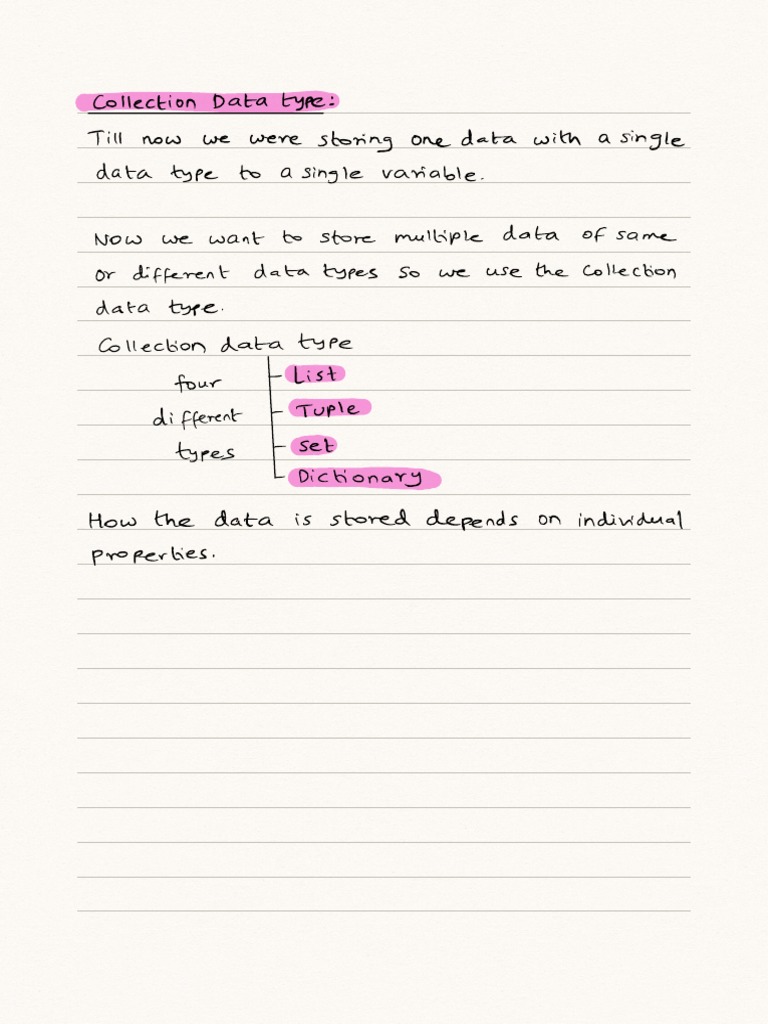 Collection Data type:
Till now we were storing one data with a single
data type to a single variable.
Now we want to store multiple data of same
or different data types so we use the collection
data type.
Collection data type
four
List
different
Tuple
types
Set
Dictionary
How the data is stored depends on individual
properties.